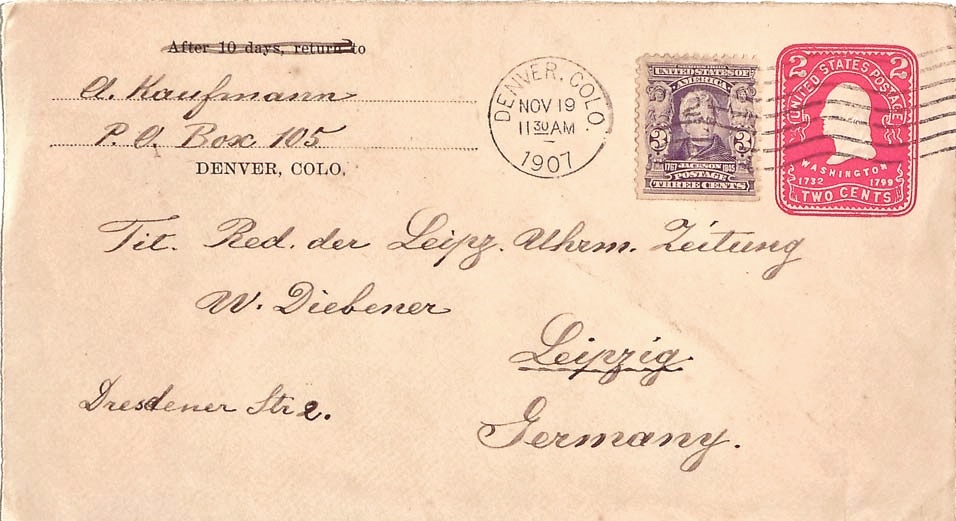 After 10 days, return to
A. Kaufmann
P. O. Box 105
DENVER, COLO.
DENVER, COLO.
NOV 19
11 30 AM
1907
UNITED STATES OF
AMERICA
3 3
1767 JACKSON 1845
POSTAGE
THREE CENTS
2 2
UNITED STATES POSTAGE
WASHINGTON
1732 1799
TWO CENTS
Tit. Red. der Leipz. Uhrm. Zeitung
W. Diebener
Leipzig.
Dresdener Str 2.
Germany.